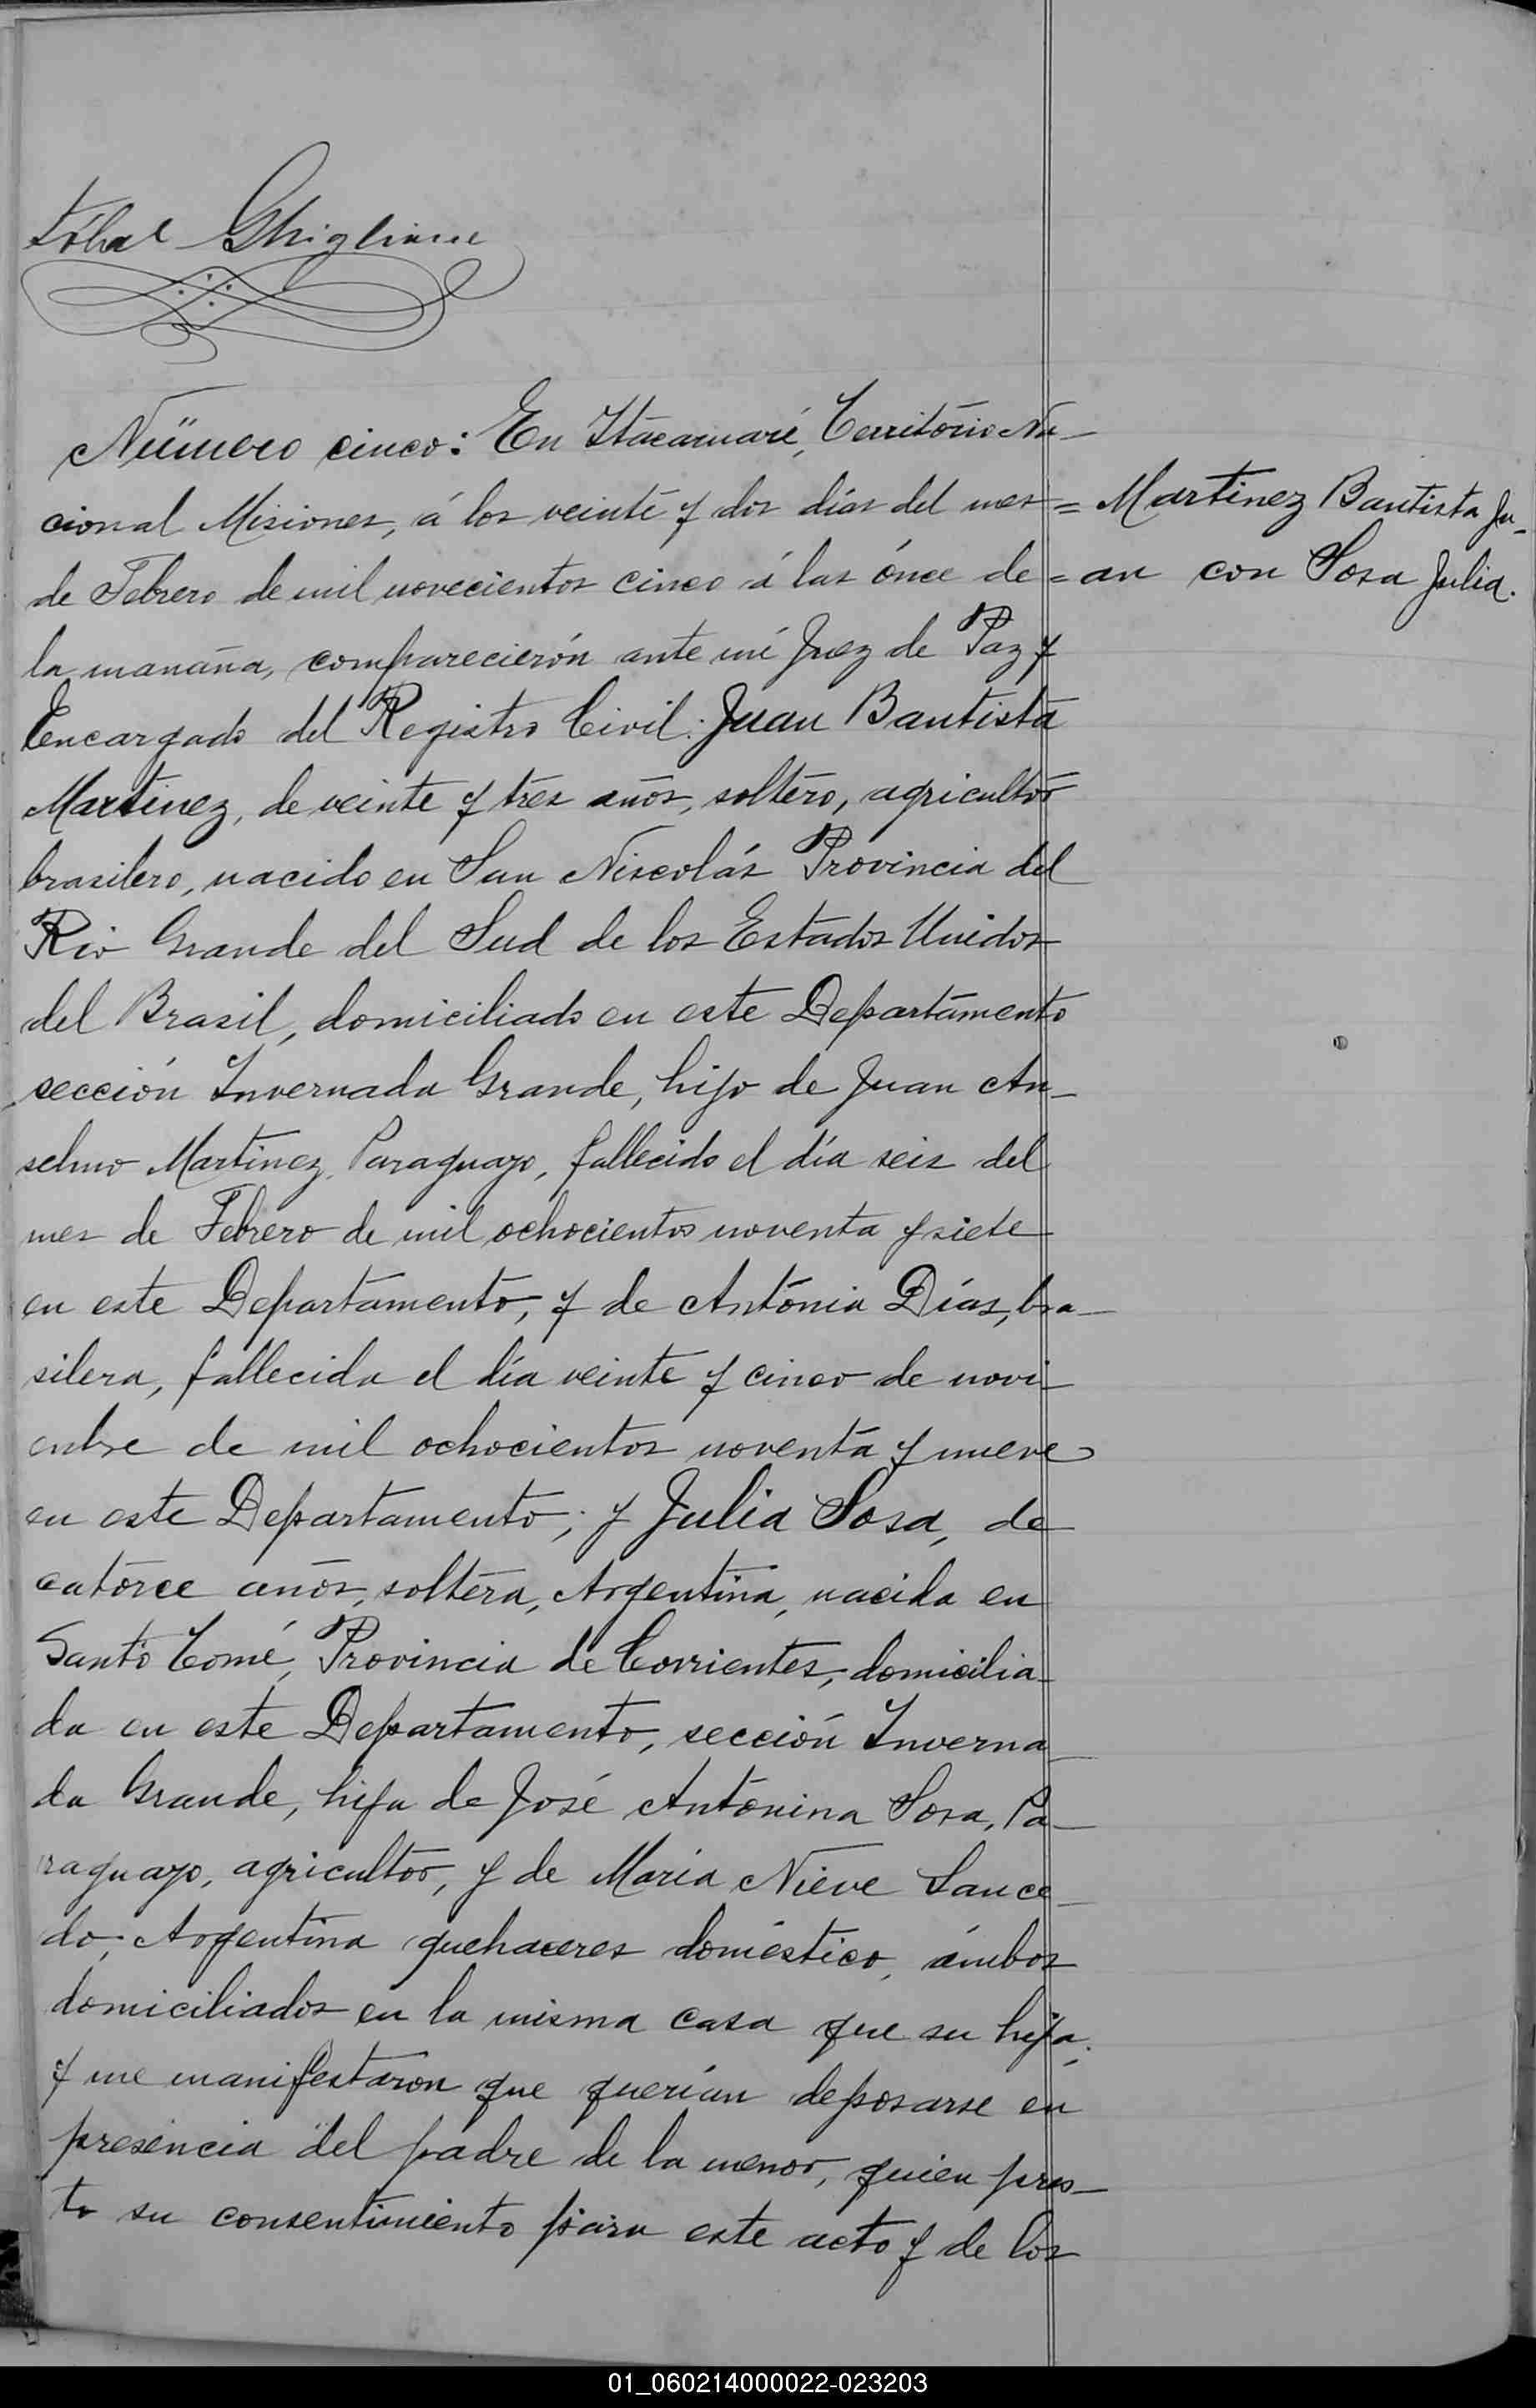 Ghigliane
Número cinco: En Itacaruaré, Território Na-
cional Misiones, á los veinte y dos días del mes =
de Febrero de mil novecientos cinco á las ónce de =
la manaña, comparecierón ante mí Juez de Paz y
Encargado del Registro Civil: Juan Bautista
Martinez, de veinte y tres años, soltero, agricultor
brasilero, nacido en San Niscolás Provincia del
Rio Grande del Sud de los Estados Unidos
del Brasil, domiciliado en este Departamento
sección Invernada Grande, hijo de Juan An-
selmo Martinez, Paraguayo, fallecido el día seis del
mes de Febrero de mil ochocientos noventa y siete
en este Departamento, y de Antónia Días, bra-
silera, fallecida el día veinte y cinco de novi-
enbre de mil ochocientos noventa y nueve
en este Departamento; y Julia Sosa, de
catorce años, soltera, Argentina, nacida en
Santo Tomé, Provincia de Corrientes, domicilia-
da en este Departamento, sección Inverna-
da Grande, hija de José Antonina Sosa, Pa-
raguayo, agricultor, y de Maria Nieve Sauce-
do, Argentina quehaceres doméstico, ámbos
domiciliados en la misma casa que su hija;
y me manifestaron que querían deposarse en
presencia del padre de la menor, quien pres-
to su consentimiento para este acto y de los
Martinez Bautista Ju-
an con Sosa Julia.
01_060214000022-023203